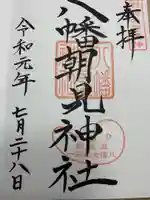 奉拝
八幡朝見神社
令和元年 七月二十八日